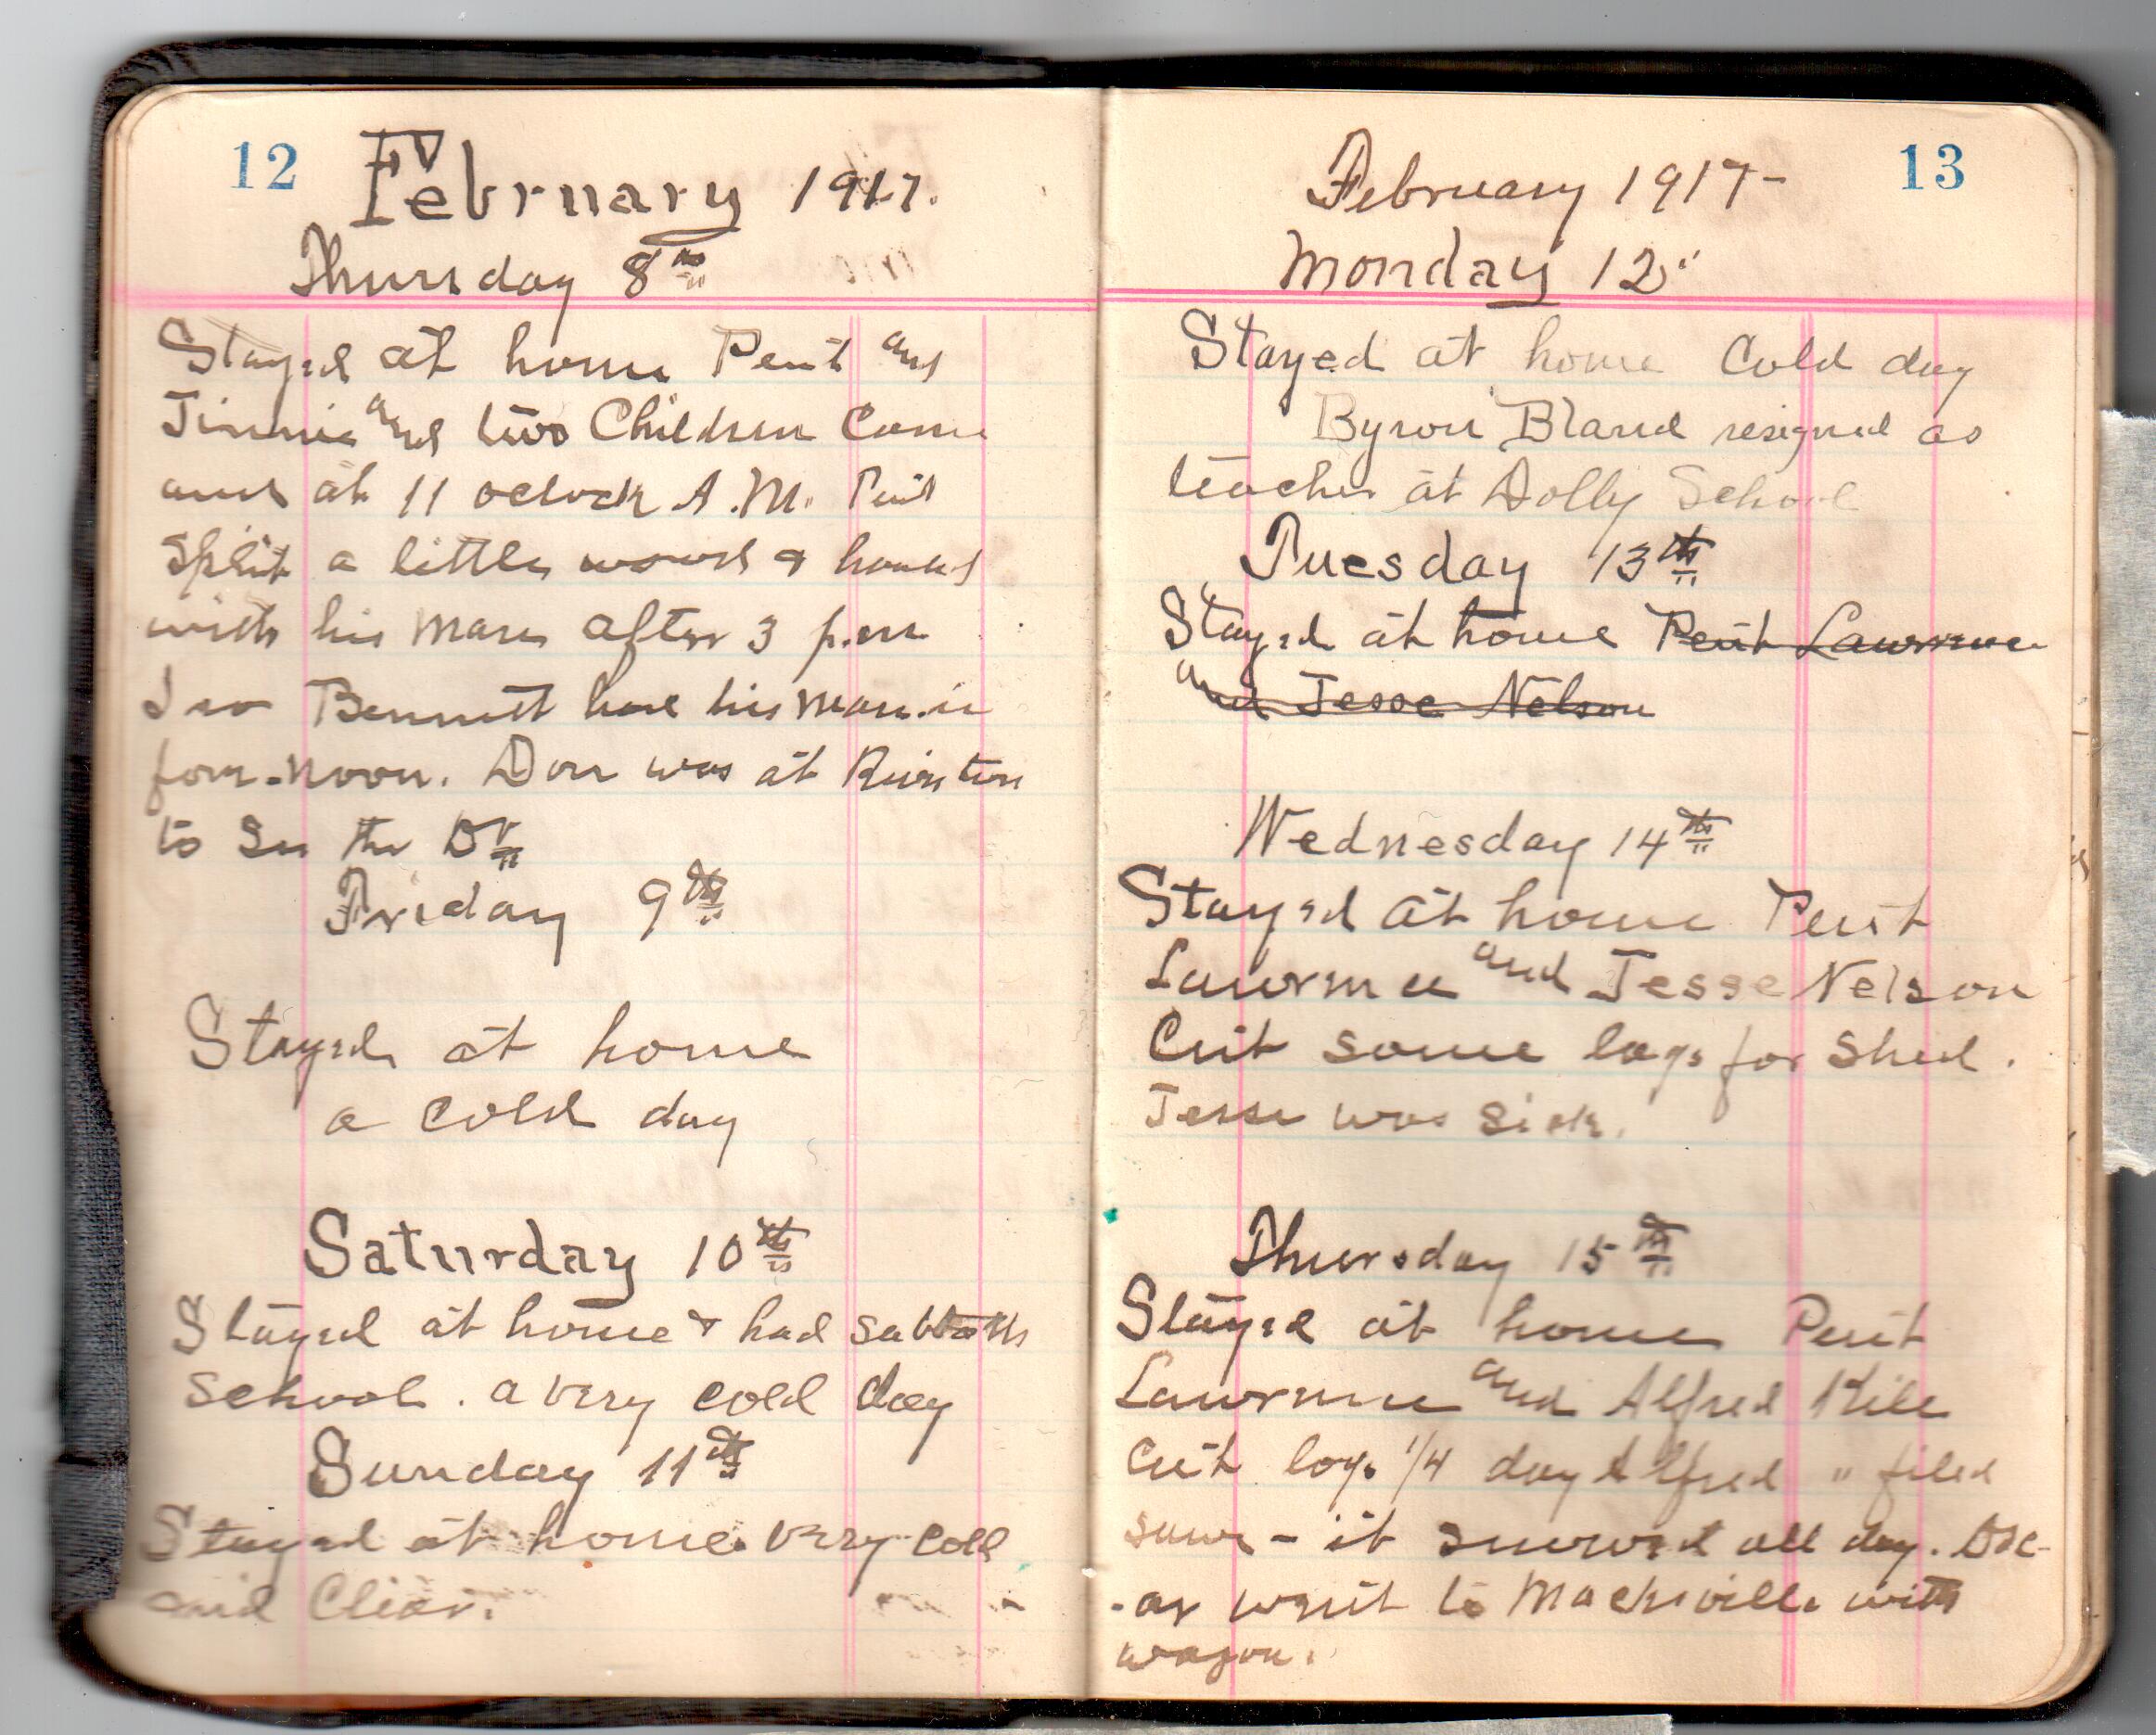 12
February 1917.
Thursday 8th
Stayed at home Pent and
Jinnie and two Children Came
and at 11 oclock A.M. Pent
Split a little wood & hauled
with his mare after 3 p.m
Bennett had his mare in
fore-noon. Don was at
to See the Dr
Friday 9th
Stayed at home
a cold day
Saturday 10th
Stayed at home & had Sabbath
School. a very cold day
Sunday 11th
Stayed at home. very cold
and Clear.
13
February 1917-
Monday 12"
Stayed at home Cold day
Byron Bland resigned as
teacher at Dolly School
Tuesday 13th
Stayed at home Pent Lawrence
and Jesse Nelson
Wednesday 14th
Stayed at home Pent
Lawrence and Jesse Nelson
Cut some logs for Shed.
Jesse was Sick.
Thursday 15th
Stayed at home Pent
Lawrence and Alfred Kile
Cut logs 1/4 day Alfred " filed
saw - it snowed all day. Osc-
-ar went to Macksville with
wagon.